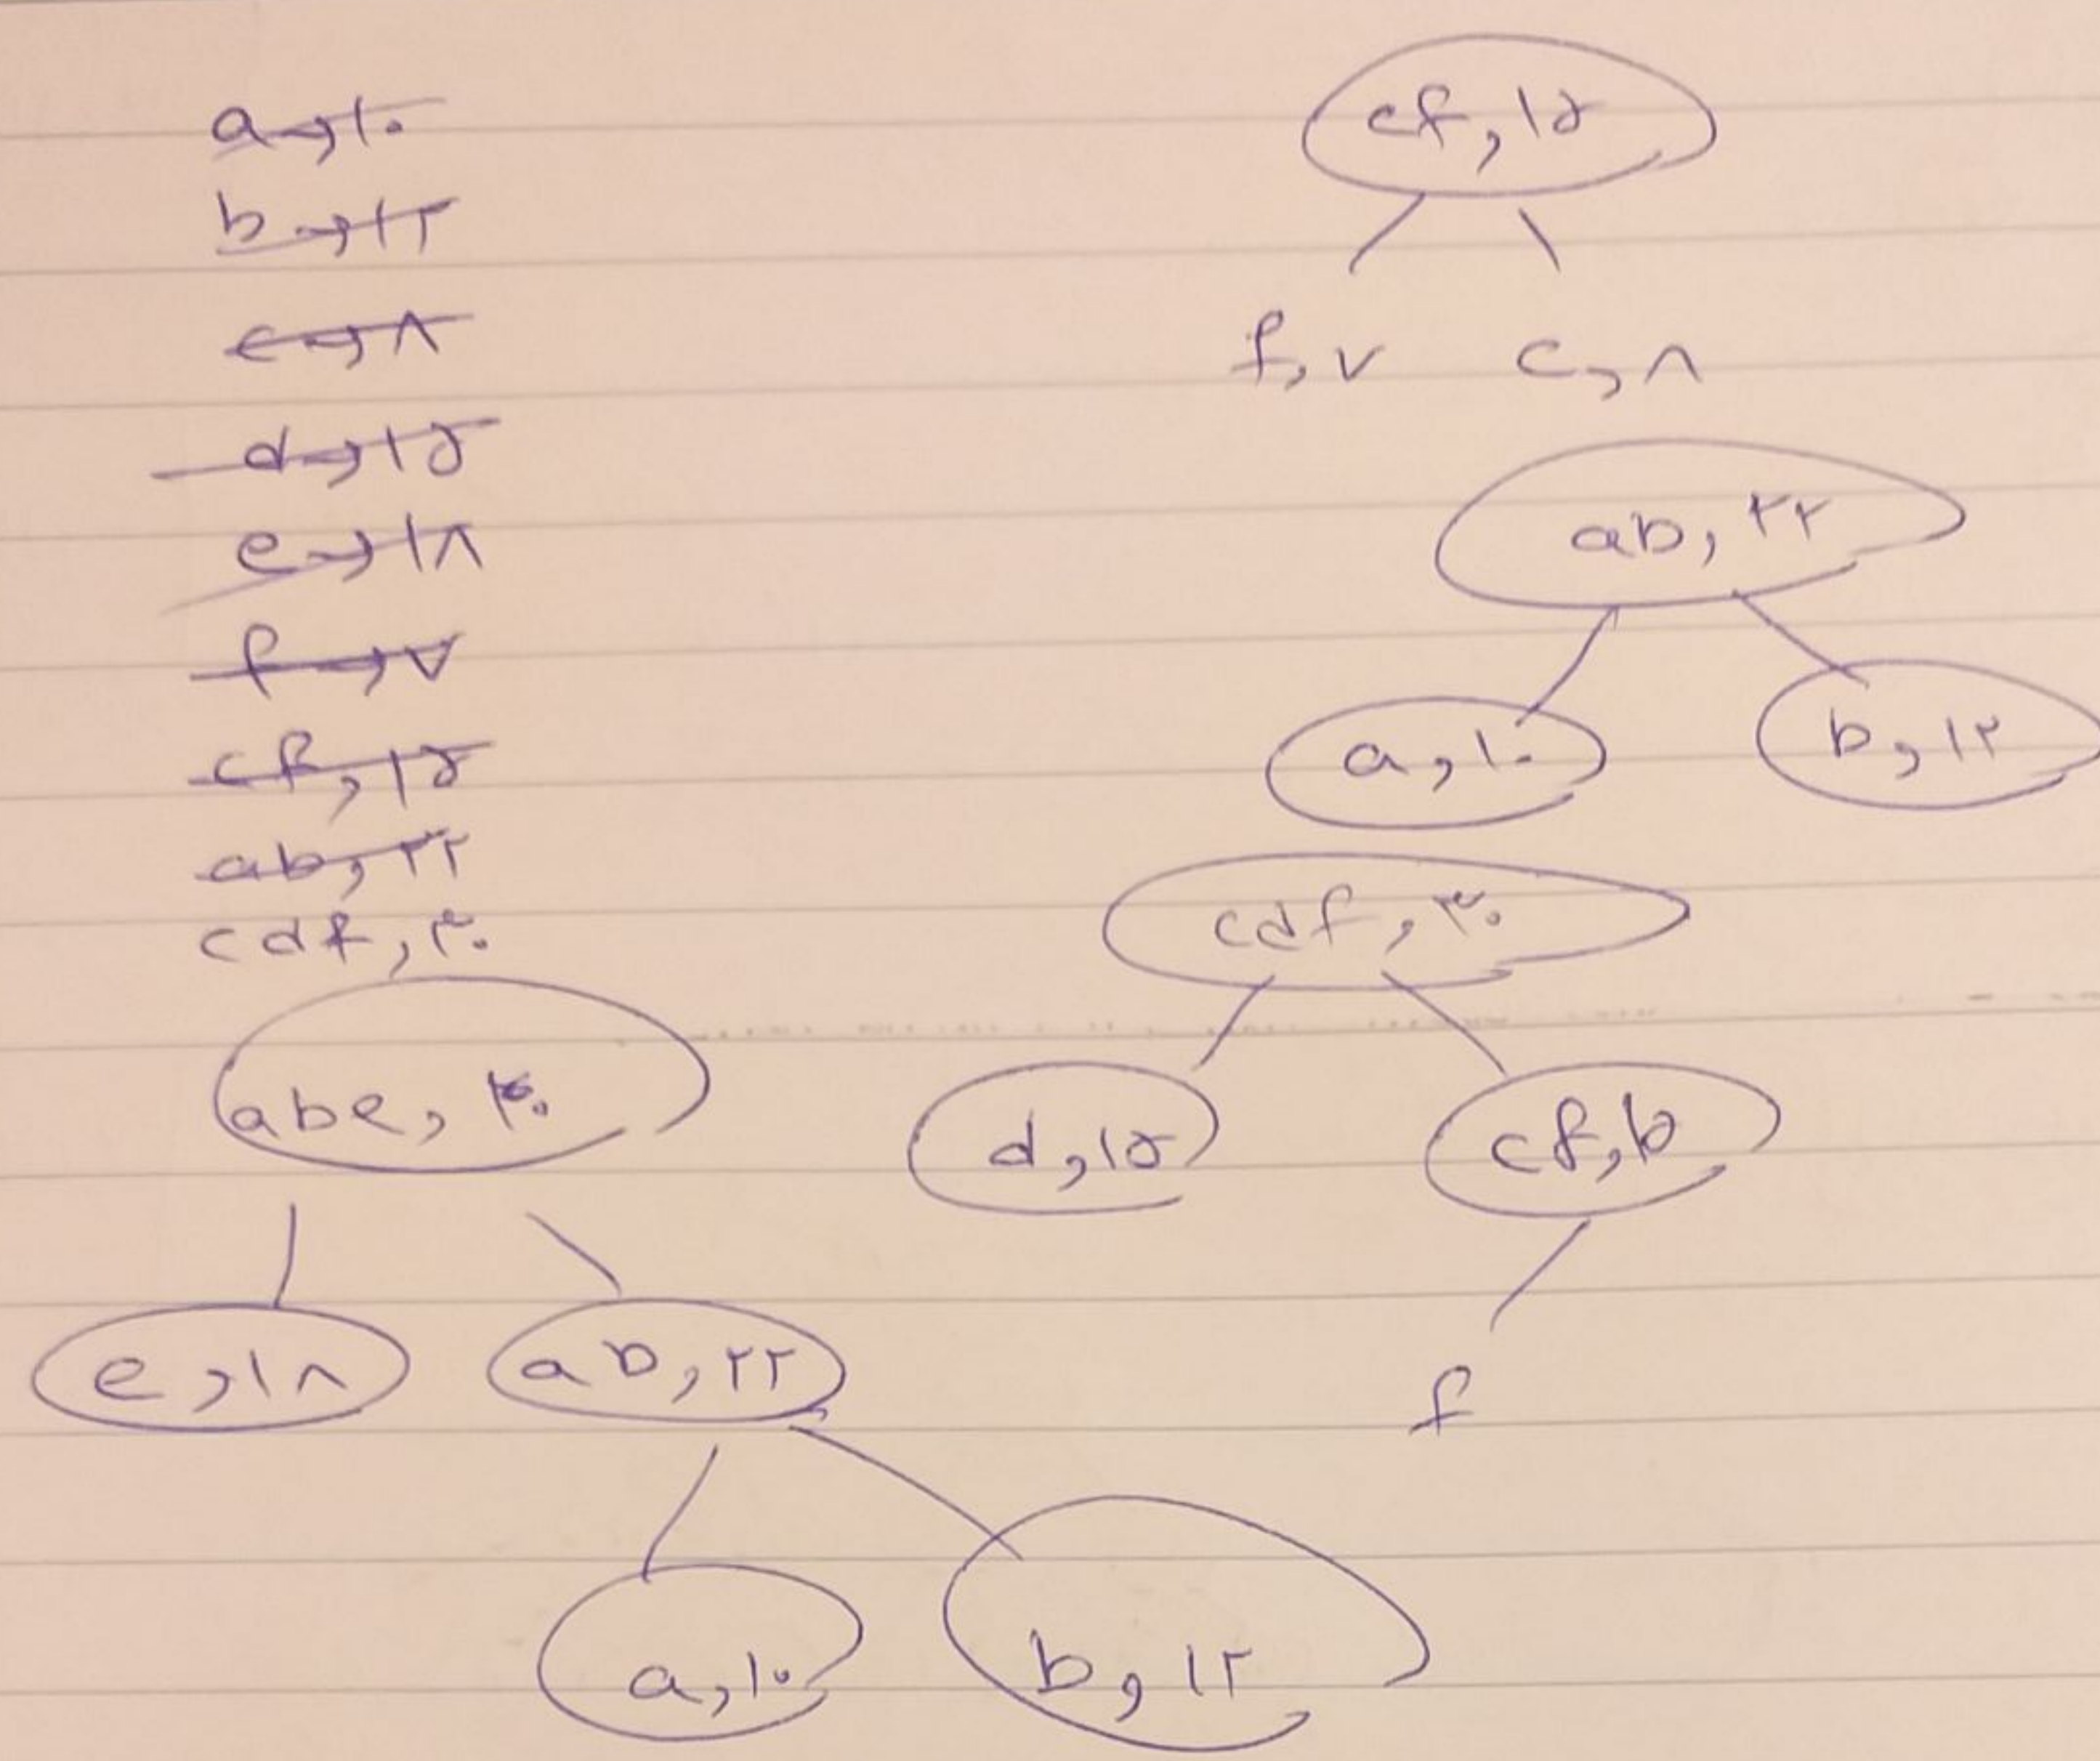 a → ۱۰
b → ۱۲
c → ۸
d → ۱۵
e → ۱۸
f → ۷
cf, ۱۵
ab, ۲۲
cdf, ۳۰
cf, ۱۵
f, ۷ c, ۸
ab, ۲۲
a, ۱۰ b, ۱۲
cdf, ۳۰
d, ۱۵ cf, ۱۵
f
abe, ۴۰
e, ۱۸ ab, ۲۲
a, ۱۰ b, ۱۲